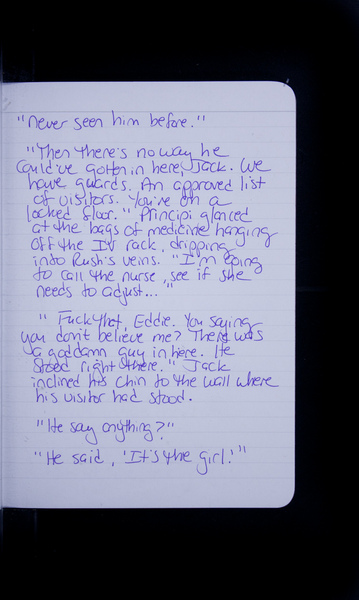 "Never seen him before."
"Then there's no way he
could've gotten in here, Jack. We
have guards. An approved list
of visitors. You're on a
locked floor." Principi glanced
at the bags of medicine hanging
off the IV rack, dripping
into Rush's veins. "I'm going
to call the nurse, see if she
needs to adjust..."
"Fuck that, Eddie. You saying
you don't believe me? There was
a goddamn guy in here. He
stood right there." Jack
inclined his chin to the wall where
his visitor had stood.
"He say anything?"
"He said, 'It's the girl.'"